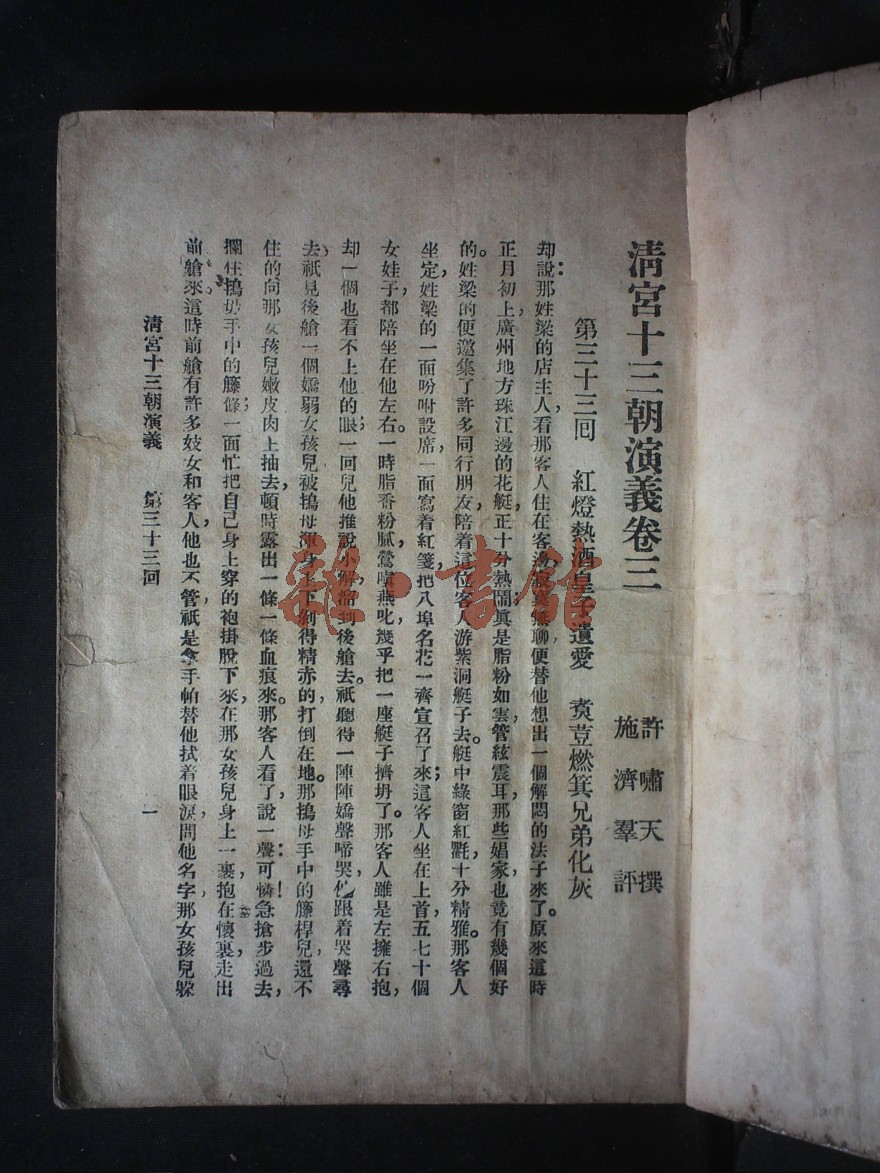 清宮十三朝演義卷三
許嘯天撰
施濟羣評
第三十三回 紅燈熱酒皇子遺愛 煑荳燃箕兄弟化灰
却說:那姓梁的店主人,看那客人住在客邊,寂寞無聊,便替他想出一個解悶的法子來了。原來這時
正月初上,廣州地方珠江邊的花艇,正十分熱鬧;眞是脂粉如雲,管絃震耳,那些娼家,也竟有幾個好
的。姓梁的便邀集了許多同行朋友,陪着這位客人游紫洞艇子去。艇中綠窗紅氍,十分精雅。那客人
坐定,姓梁的一面吩咐設席,一面寫着紅箋,把八埠名花一齊宣召了來;這客人坐在上首,五七十個
女娃子,都陪坐在他左右。一時脂香粉膩,鶯嗔燕叱,幾乎把一座艇子擠坍了。那客人雖是左擁右抱,
却一個也看不上他的眼;一回兒他推說小解,溜到後艙去。祇聽得一陣陣嬌聲啼哭,他跟着哭聲尋
去,祇見後艙一個嬌弱女孩兒,被搗母渾身上下剝得精赤的,打倒在地。那搗母手中的籐桿兒,還不
住的向那女孩兒嫩皮肉上抽去,頓時露出一條一條血痕來。那客人看了,說一聲:可憐!急搶步過去,
攔住搗母手中的籐條;一面忙把自己身上穿的袍掛脫下來,在那女孩兒身上一裹,抱在懷裏,走出
前艙來。這時前艙有許多妓女和客人,他也不管,祇是拿手帕替他拭着眼淚,問他名字。那女孩兒躱
清宮十三朝演義 第三十三回 一
雜·書館